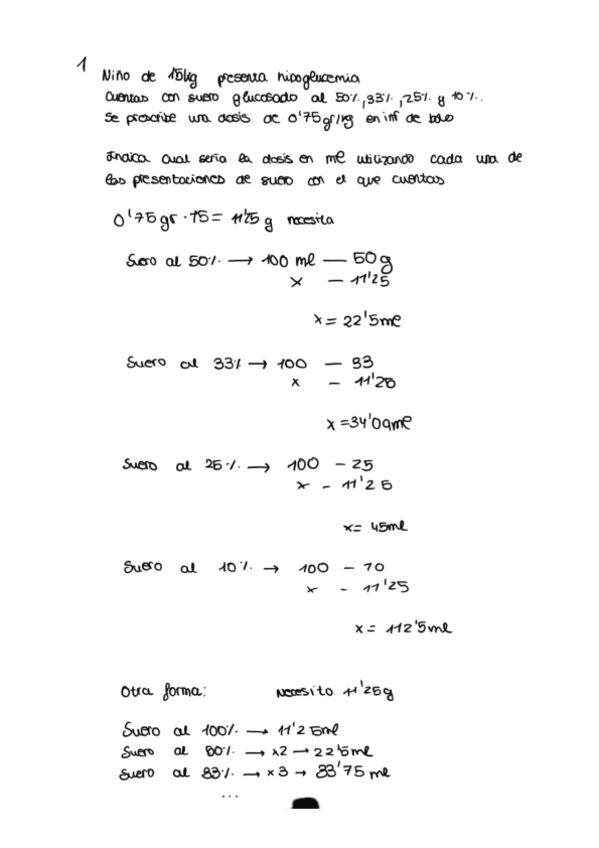 1
Niño de 15kg presenta hipoglucemia
Cuentas con suero glucosado al 50%, 33%, 25% y 10%.
Se prescribe una dosis de 0'75gr/kg en inf de bolo
Indica cual seria la dosis en ml utilizando cada una de
las presentaciones de suero con el que cuentas
0'75gr · 15 = 11'25 g necesita
Suero al 50% → 100 ml — 50g
x — 11'25
x = 22'5ml
Suero al 33% → 100 — 33
x — 11'25
x = 34'09ml
Suero al 25% → 100 — 25
x - 11'25
x = 45ml
Suero al 10% → 100 — 10
x - 11'25
x = 112'5ml
Otra forma: Necesito 11'25g
Suero al 100% → 11'25ml
Suero al 50% → x2 → 22'5ml
Suero al 33% → x3 → 33'75 ml
...